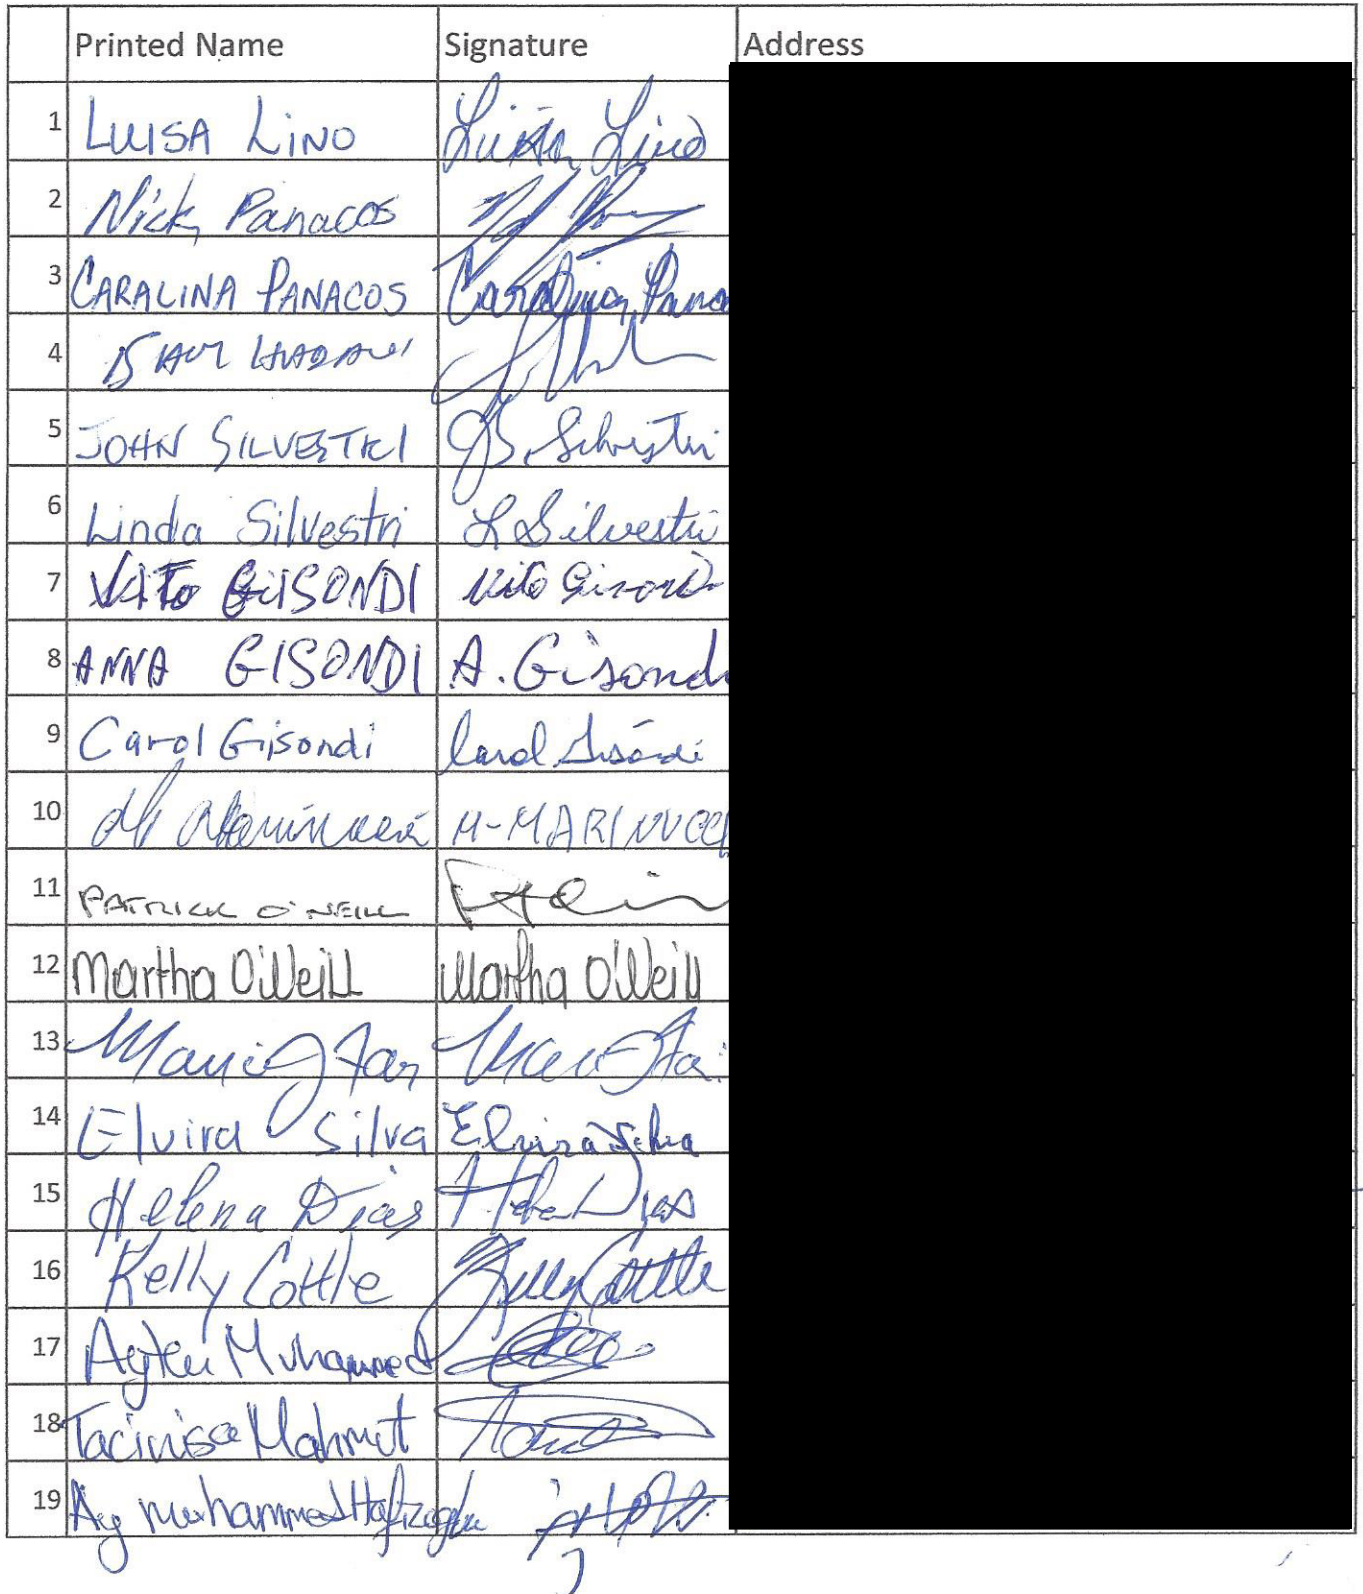 Printed Name Signature Address
1 LUISA LINO Luisa Lino
2 Nick Panacos
3 CARALINA PANACOS Caralina Pana
4
5 JOHN SILVESTRI J Silvestri
6 Linda Silvestri L Silvestri
7 VITO GISONDI Vito Gisondi
8 ANNA GISONDI A. Gisondi
9 Carol Gisondi Carol Gisondi
10 M-MARINUCCI
11 PATRICK O'NEILL
12 Martha O'Neill Martha O'Neill
13
14 Elvira Silva Elvira Silva
15 Helena Dias Dias
16 Kelly Cottle Kelly Cottle
17 Muhammed
18 Mahmut
19 Muhammed